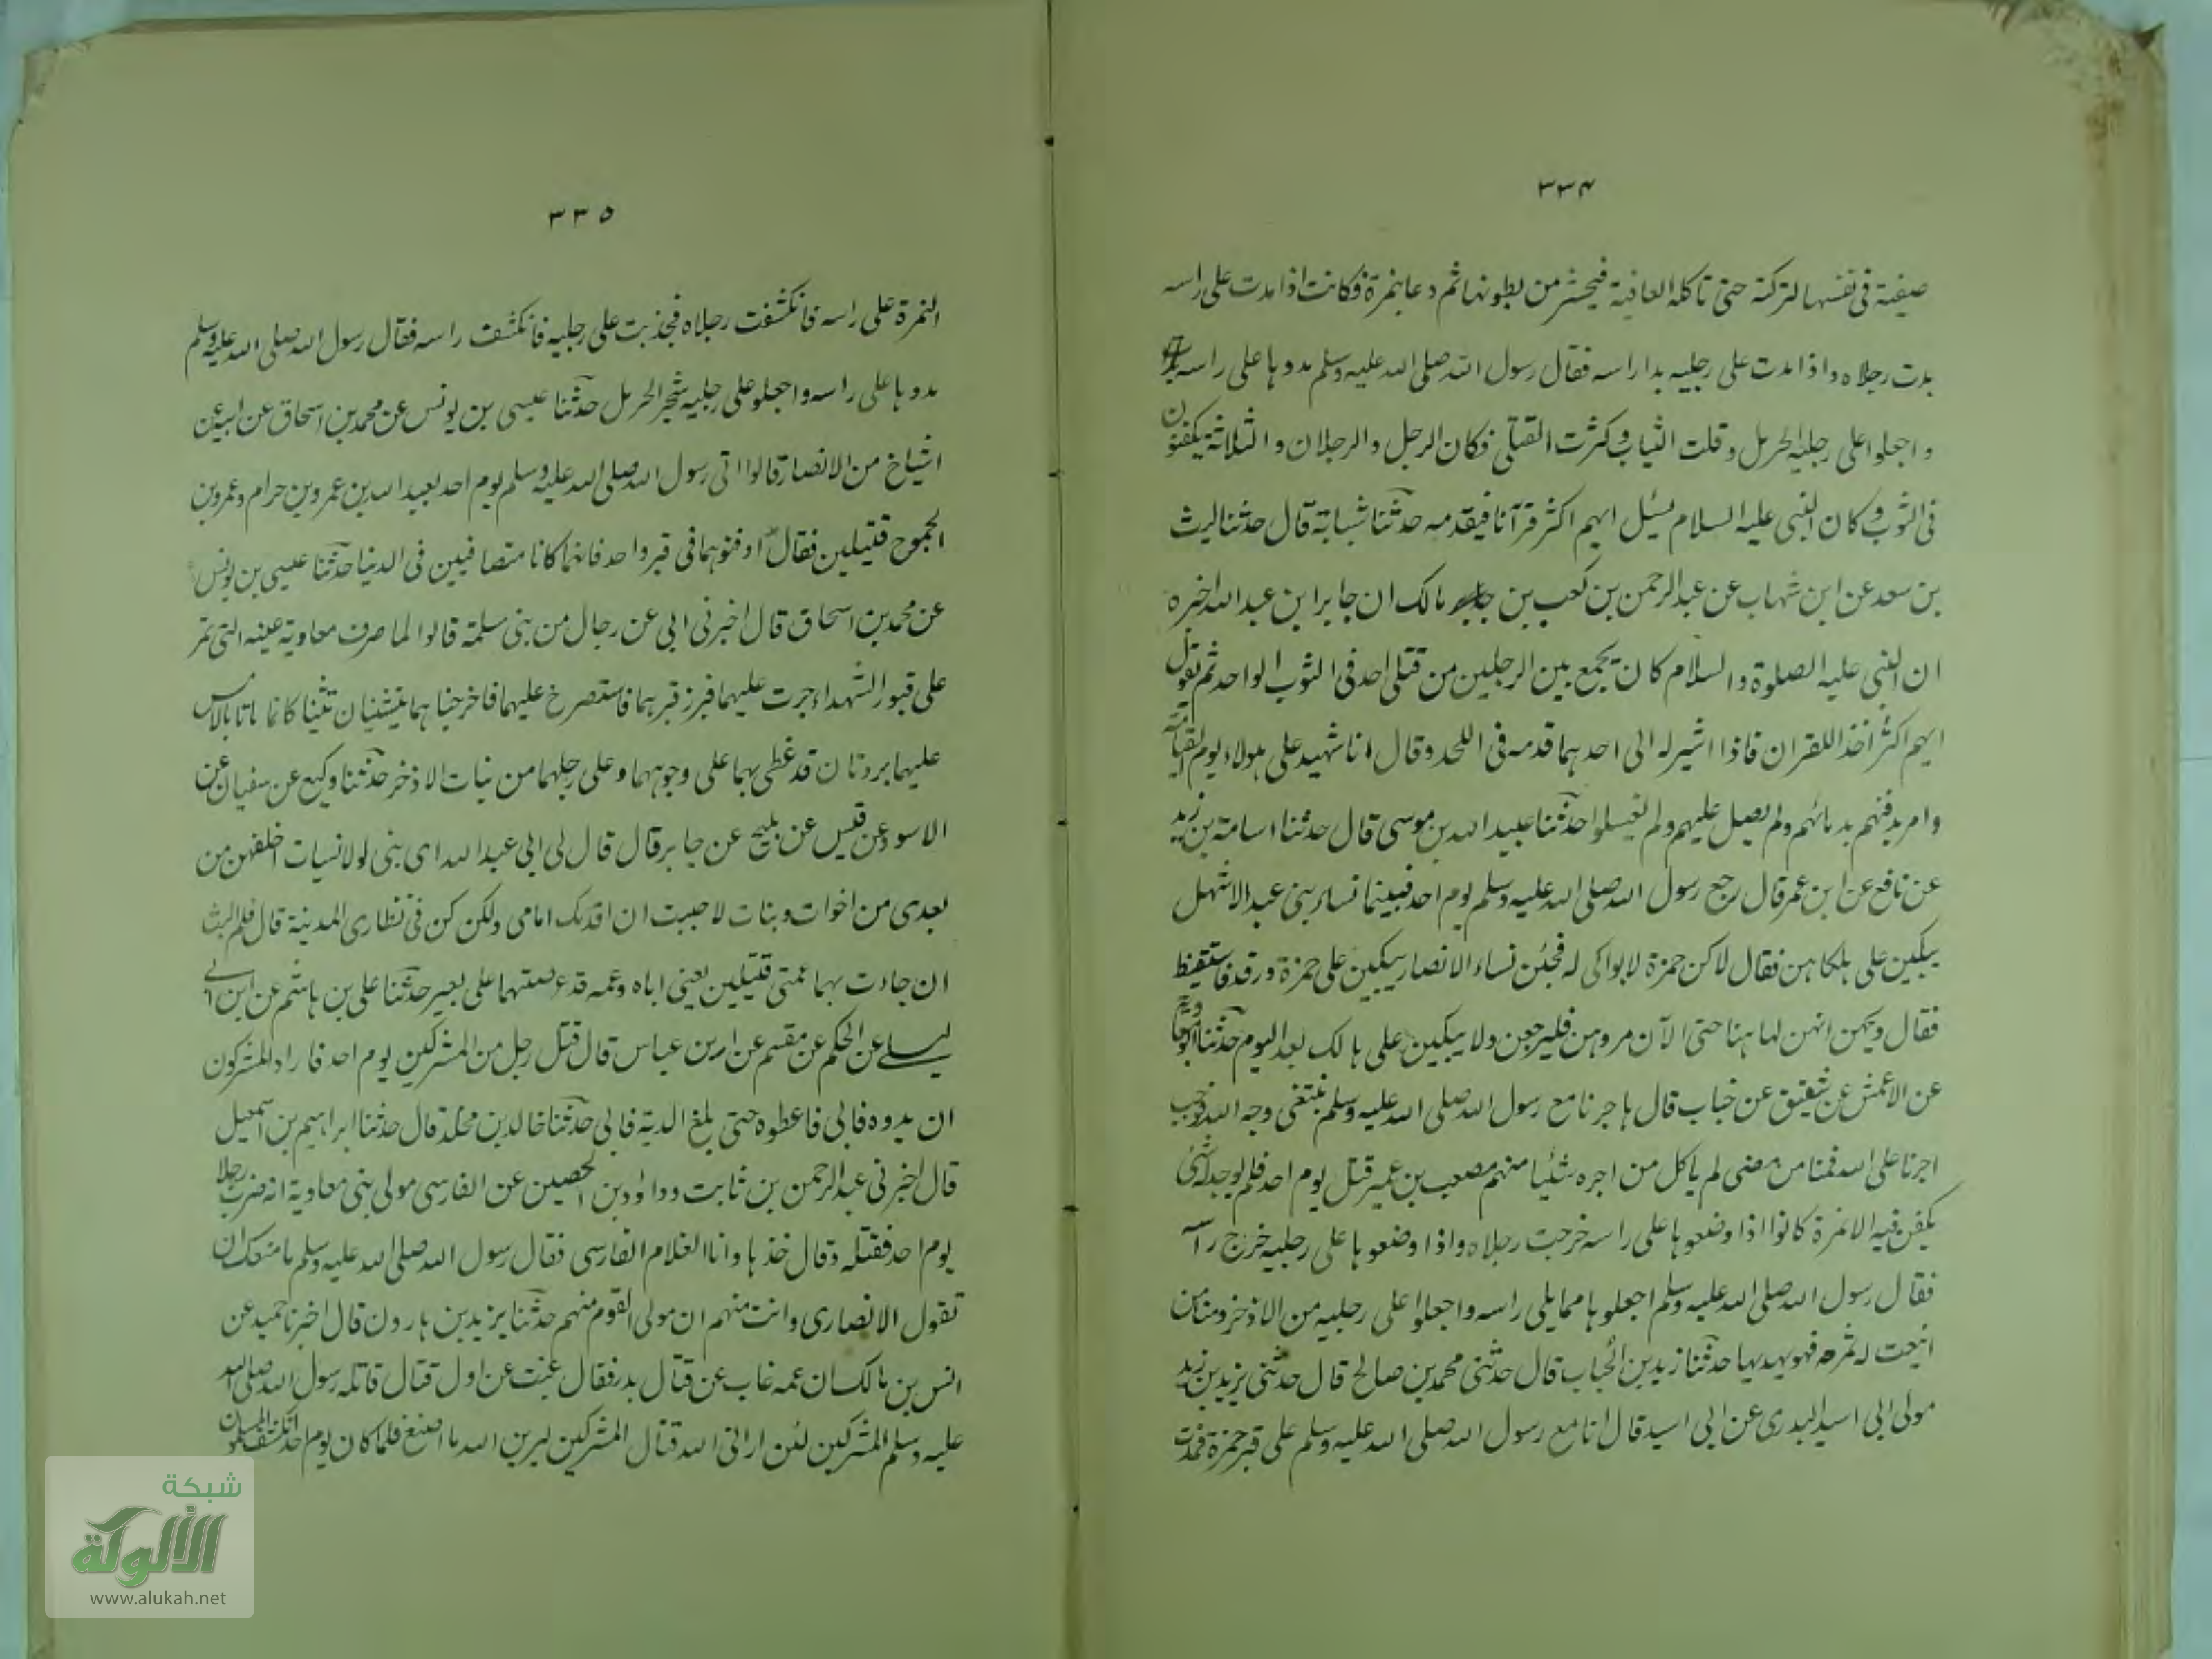 ٣٣٤
صفية فى نفسها لتركته حتى تاكله العافية فيحشر من بطونها ثم دعا بنمرة فكانت اذا مدت على راسه
بدت رجلاه واذا مدت على رجليه بدا راسه فقال رسول الله صلى الله عليه وسلم مدوها على راسه
واجعلوا على رجليه الحرمل وقلت الثياب وكثرت القتلى فكان الرجل والرجلان والثلاثة يكفنون
فى الثوب وكان النبى عليه السلام يسئل ايهم اكثر قرآنا فيقدمه حدثنا شبابة قال حدثنا ليث
بن سعد عن ابن شهاب عن عبد الرحمن بن كعب بن مالك ان جابر ابن عبد الله اخبره
ان النبى عليه الصلوة والسلام كان يجمع بين الرجلين من قتلى احد فى الثوب الواحد ثم يقول
ايهم اكثر اخذ اللقران فاذا اشير له الى احدهما قدمه فى اللحد وقال انا شهيد على هولاء يوم القيامة
وامر بدفنهم بدمائهم ولم يصل عليهم ولم يغسلوا حدثنا عبيد الله بن موسى قال حدثنا اسامة بن زيد
عن نافع عن ابن عمر قال رجع رسول الله صلى الله عليه وسلم يوم احد فبينما نساء بنى عبد الاشهل
يبكين على هلكاهن فقال لاكن حمزة لا بواكى له فجئن نساء الانصار يبكين على حمزة ورقد فاستيقظ
فقال ويحهن انهن لها هنا حتى الآن مروهن فليرجعن ولا يبكين على هالك بعد اليوم حدثنا ابو معاوية
عن الاعمش عن شقيق عن خباب قال هاجرنا مع رسول الله صلى الله عليه وسلم نبتغى وجه الله فوجب
اجرنا على الله فمنا من مضى لم ياكل من اجره شئيا منهم مصعب بن عمير قتل يوم احد فلم يوجد له شئ
يكفن فيه الا نمرة كانوا اذا وضعوها على راسه خرجت رجلاه واذا وضعوها على رجليه خرج راسه
فقال رسول الله صلى الله عليه وسلم اجعلوها مما يلى راسه واجعلوا على رجليه من الاذخر ومنا من
اينعت له ثمره فهو يهديها حدثنا زيد بن الحباب قال حدثنى محمد بن صالح قال حدثنى يزيد بن زيد
مولى ابى اسيد البدرى عن ابى اسيد قال انا مع رسول الله صلى الله عليه وسلم على قبر حمزة فمدت
٣٣٥
النمرة على راسه فانكشفت رجلاه فجذبت على رجليه فانكشف راسه فقال رسول الله صلى الله عليه وسلم
مدوها على راسه واجعلوا على رجليه شجر الحرمل حدثنا عيسى بن يونس عن محمد بن اسحاق عن ابيه عن
اشياخ من الانصار قالوا اتى رسول الله صلى الله عليه وسلم يوم احد بعبد الله بن عمرو بن حرام وعمرو بن
الجموح قتيلين فقال ادفنوهما فى قبر واحد فانهما كانا متصافيين فى الدنيا حدثنا عيسى بن يونس
عن محمد بن اسحاق قال اخبرنى ابى عن رجال من بنى سلمة قالوا لما صرف معاوية عينه التى تمر
على قبور الشهداء جرت عليهما فبرز قبرهما فاستصرخ عليهما فاخرجناهما يتثنيان تثنيا كانما ماتا بالامس
عليهما بردتان قد غطى بهما على وجوههما وعلى رجلهما من نبات الاذخر حدثنا وكيع عن سفيان عن
الاسود بن قيس عن نبيح عن جابر قال قال لى ابى عبد الله اى بنى لولا نسيات اخلفهن من
بعدى من اخوات وبنات لاحببت ان اقدمك امامى ولكن كن فى نظارى المدينة قال فلم البث
ان جاءت بهما عمتى قتيلين يعنى اباه وعمه قد عرضتهما على بعير حدثنا على بن هاشم عن ابن ابى
ليلى عن الحكم عن مقسم عن ابن عباس قال قتل رجل من المشركين يوم احد فاراد المشركون
ان يدوه فابى فاعطوه حتى بلغ الدية فابى حدثنا خالد بن مخلد قال حدثنا ابراهيم بن اسمعيل
قال اخبرنى عبد الرحمن بن ثابت وداؤد بن الحصين عن الفارسى مولى بنى معاوية انه ضرب رجلا
يوم احد فقتله وقال خذها وانا الغلام الفارسى فقال رسول الله صلى الله عليه وسلم ما منعك ان
تقول الانصارى وانت منهم ان مولى القوم منهم حدثنا يزيد بن هارون قال اخبرنا حميد عن
انس بن مالك ان عمه غاب عن قتال بدر فقال غبت عن اول قتال قاتله رسول الله صلى الله
عليه وسلم المشركين لئن ارانى الله قتال المشركين ليرين الله ما اصنع فلما كان يوم احد انكشف المسلمون
شبكة
الألوكة
www.alukah.net